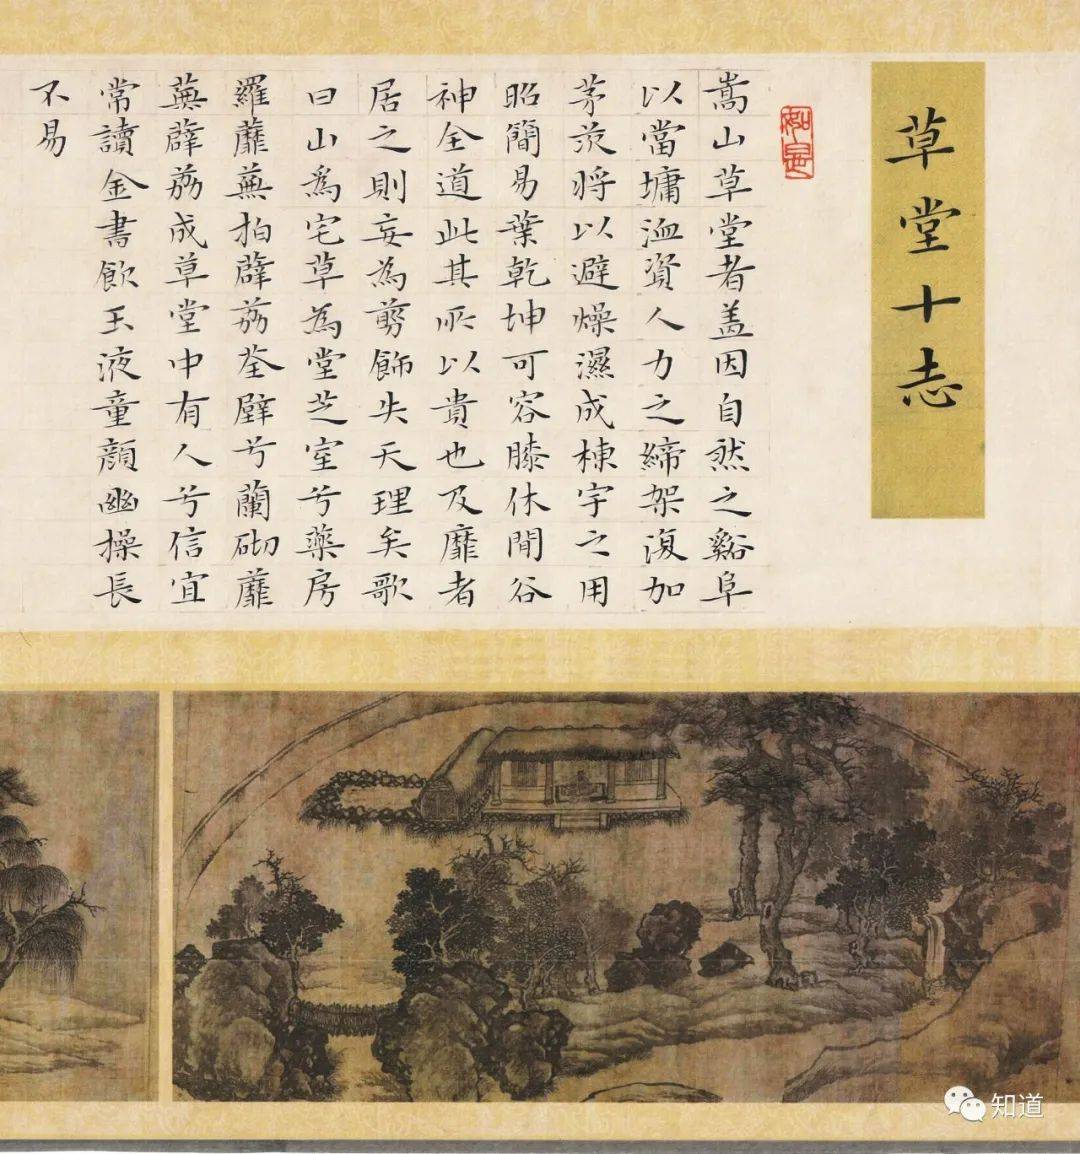 草堂十志
嵩山草堂者盖因自然之谿阜
以當墉洫資人力之締架復加
茅茨将以避燥濕成棟宇之用
昭簡易葉乾坤可容膝休閒谷
神全道此其所以貴也及靡者
居之則妄為剪飾失天理矣歌
曰山爲宅草為堂芝室兮藥房
羅蘼蕪拍薜荔荃壁兮蘭砌蘼
蕪薜荔成草堂中有人兮信宜
常讀金書飲玉液童顔幽操長
不易
知道